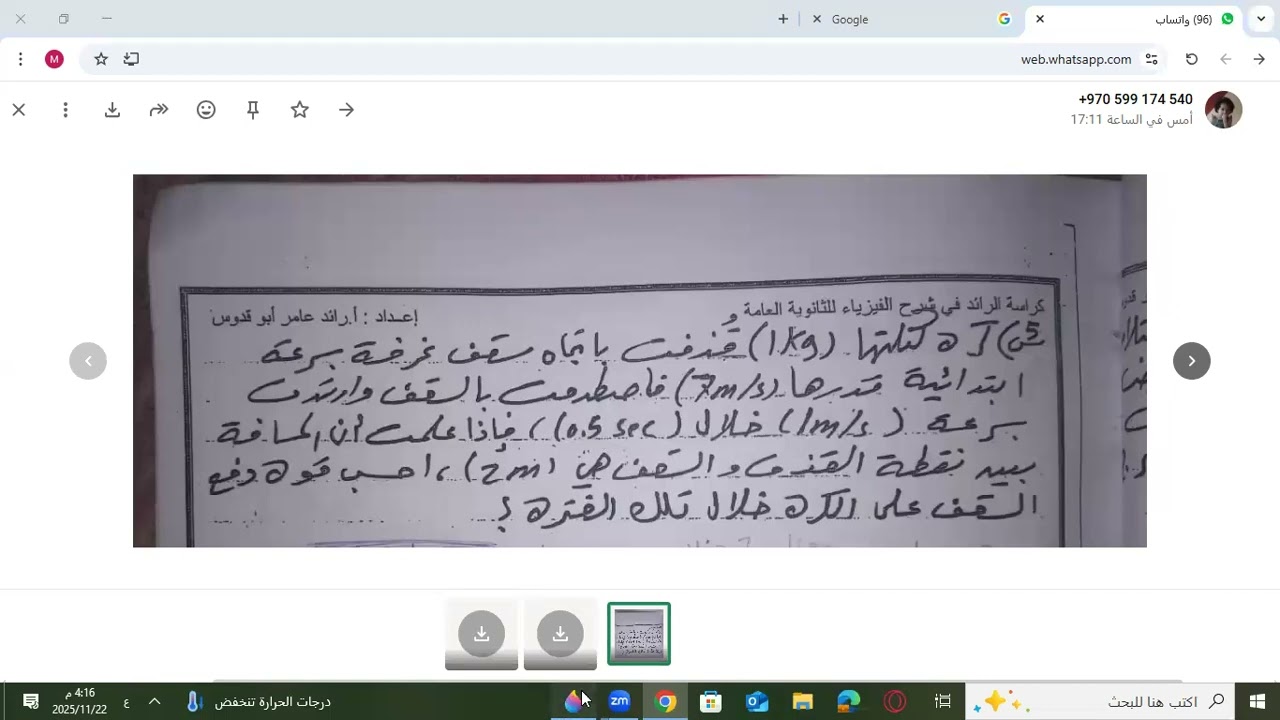 (96) واتساب
Google
web.whatsapp.com
M
+970 599 174 540
أمس في الساعة 17:11
كراسة الرائد في شرح الفيزياء للثانوية العامة
إعداد : أ.رائد عامر أبو قدوس
س5) كرة كتلتها (1kg) قُذفت باتجاه سقف غرفة بسرعة
ابتدائية قدرها (7m/s) فاصطدمت بالسقف وارتدت
بسرعة (1m/s) خلال (0.5 sec)، فإذا علمت أن المسافة
بين نقطة القذف والسقف هي (2m)، احسب قوة دفع
السقف على الكرة خلال تلك الفترة؟
zm
درجات الحرارة تنخفض
ع
4:16 م
2025/11/22
اكتب هنا للبحث